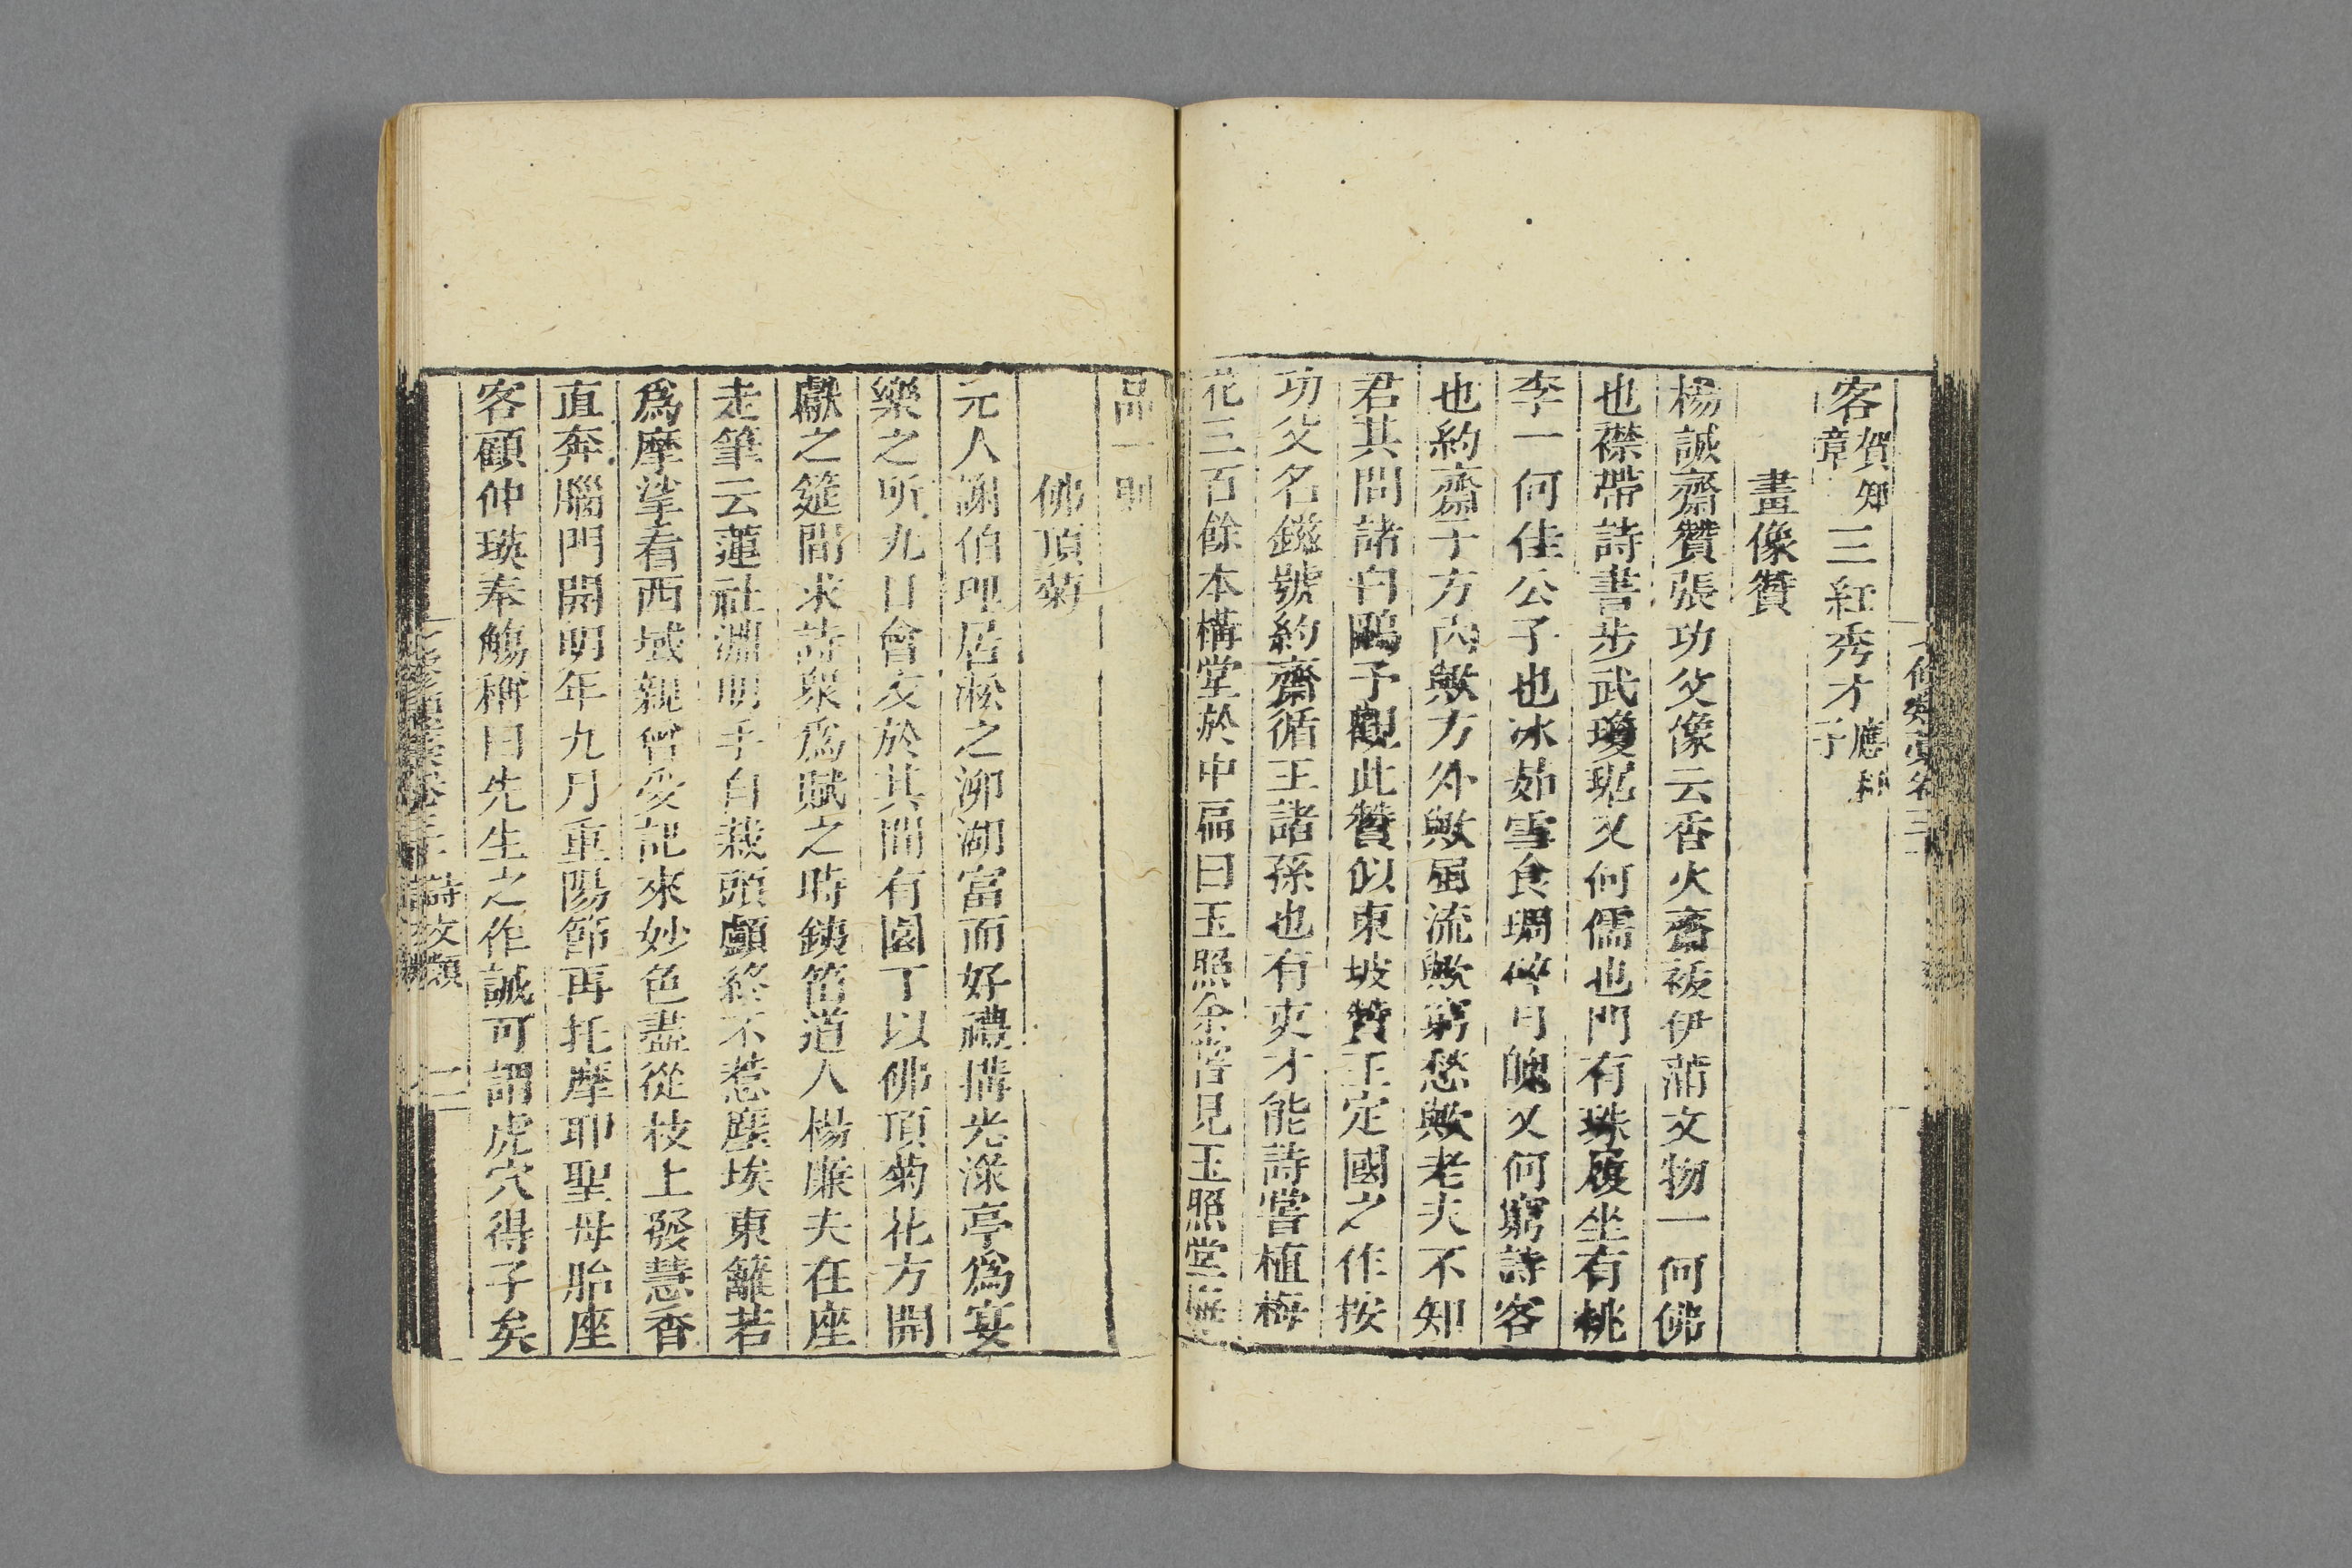 客賀知章三紅秀才應科子
畫像贊
楊誠齋贊張功父像云香火齋祓伊蒲文物一何佛
也襟帶詩書步武瓊琚又何儒也門有珠履坐有桃
李一何佳公子也冰茹雪食琱碎月魄又何窮詩客
也約齋子方內歟方外歟風流歟窮愁歟老夫不知
君其問諸白鷗予觀此贊似東坡贊王定國之作按
功父名鎡號約齋循王諸孫也有吏才能詩嘗植梅
花三百餘本構堂於中扁曰玉照余嘗見玉照堂梅
品一則
佛頂菊
元人謝伯理居淞之泖湖富而好禮搆光淥亭爲宴
樂之所九日會友於其間有園丁以佛頂菊花方開
獻之筵間求詩衆爲賦之時銕笛道人楊廉夫在座
走筆云蓮社淵明手自栽頭顱終不惹塵埃東籬若
爲摩挲看西域親曾受記來妙色盡從枝上發慧香
直奔腦門開明年九月重陽節再托摩耶聖母胎座
客顧仲瑛奉觴稱曰先生之作誠可謂虎穴得子矣
詩文類
二